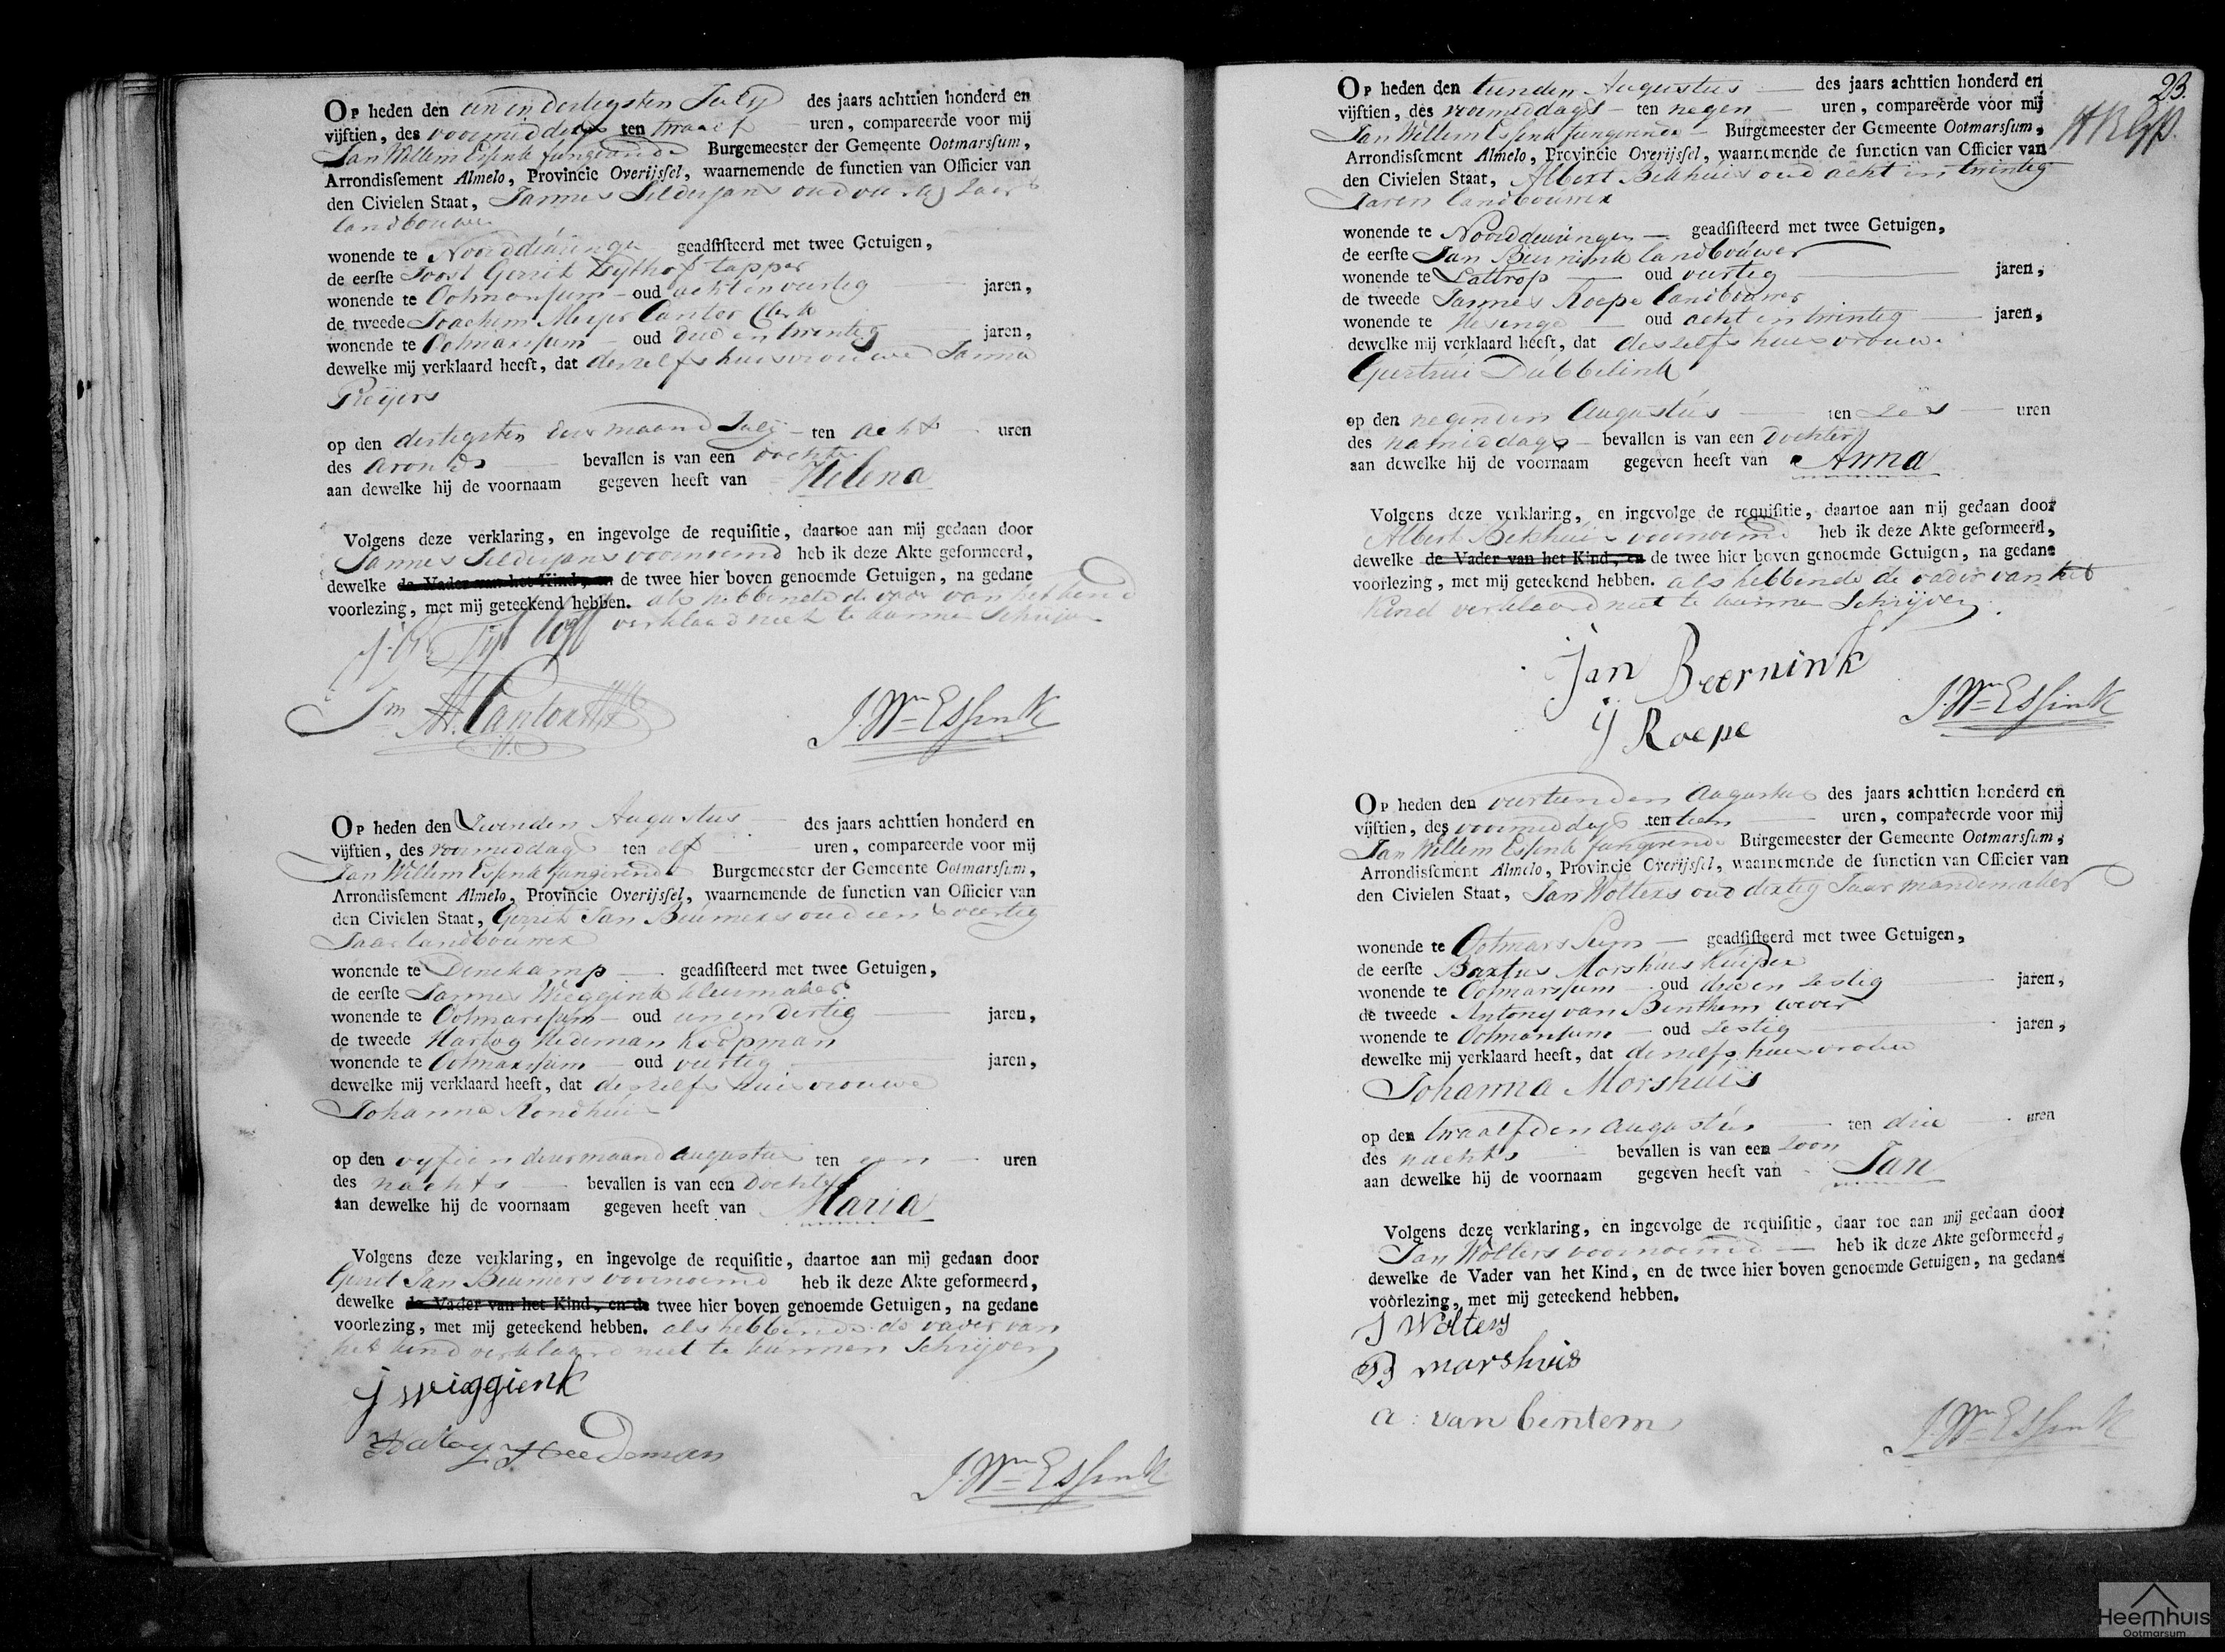 Op heden den een en dertigsten July des jaars achttien honderd en
vijftien, des voormiddags ten twaalf uren, compareerde voor mij
Jan Willem Essink fungerende Burgemeester der Gemeente Ootmarssum,
Arrondissement Almelo, Provincie Overijssel, waarnemende de functien van Officier van
den Civielen Staat, Jannes oud Jaar
landbouwer
wonende te Noorddeuringe geadsisteerd met twee Getuigen,
de eerste Joost Gerrit tapper
wonende te Ootmarssum oud acht en veertig jaren,
de tweede Joachim Meijer Cantor
wonende te Ootmarssum oud drie en twintig jaren,
dewelke mij verklaard heeft, dat deszelfs huisvrouwe Janna
Reijers
op den dertigsten deser maand July ten acht uren
des avonds bevallen is van een dochter
aan dewelke hij de voornaam gegeven heeft van Helena
Volgens deze verklaring, en ingevolge de requisitie, daartoe aan mij gedaan door
Jannes voornoemd heb ik deze Akte geformeerd,
dewelke de Vader van het Kind, en de twee hier boven genoemde Getuigen, na gedane
voorlezing, met mij geteekend hebben. als hebbende de vader van het kind
verklaard niet te kunnen Schrijven
J. Wm Essink
Op heden den Sevenden Augustus des jaars achttien honderd en
vijftien, des voormiddags ten elf uren, compareerde voor mij
Jan Willem Essink fungerende Burgemeester der Gemeente Ootmarssum,
Arrondissement Almelo, Provincie Overijssel, waarnemende de functien van Officier van
den Civielen Staat, Gerrit Jan Beumers oud een & veertig
Jaar landbouwer
wonende te Denekamp geadsisteerd met twee Getuigen,
de eerste Jannes Wieggink kleermaker
wonende te Ootmarssum oud een en dertig jaren,
de tweede Hartog Hedeman Koopman
wonende te Ootmarssum oud veertig jaren,
dewelke mij verklaard heeft, dat deszelfs huisvrouwe
Johanna Rondhuis
op den vyfden deser maand Augustus ten een uren
des nachts bevallen is van een dochter
aan dewelke hij de voornaam gegeven heeft van Maria
Volgens deze verklaring, en ingevolge de requisitie, daartoe aan mij gedaan door
Gerrit Jan Beumers voornoemd heb ik deze Akte geformeerd,
dewelke de Vader van het Kind, en de twee hier boven genoemde Getuigen, na gedane
voorlezing, met mij geteekend hebben. als hebbende de vader van
het kind verklaard niet te kunnen Schrijven
J wiggienk
Hartog Heedeman
J. Wm Essink
23.
Op heden den tienden Augustus des jaars achttien honderd en
vijftien, des voormiddags ten negen uren, compareerde voor mij
Jan Willem Essink fungerende Burgemeester der Gemeente Ootmarssum,
Arrondissement Almelo, Provincie Overijssel, waarnemende de functien van Officier van
den Civielen Staat, Albert Bekhuis oud acht en twintig
Jaren landbouwer
wonende te Noorddeuringen geadsisteerd met twee Getuigen,
de eerste Jan Beernink landbouwer
wonende te Lattrop oud veertig jaren,
de tweede Jannes Roepe landbouwer
wonende te Hesinge oud acht en twintig jaren,
dewelke mij verklaard heeft, dat deszelfs huisvrouwe
Geertrui Dubbelink
op den negenden Augustus ten zes uren
des namiddags bevallen is van een dochter
aan dewelke hij de voornaam gegeven heeft van Anna
Volgens deze verklaring, en ingevolge de requisitie, daartoe aan mij gedaan door
Albert Bekhuis voornoemd heb ik deze Akte geformeerd,
dewelke de Vader van het Kind, en de twee hier boven genoemde Getuigen, na gedane
voorlezing, met mij geteekend hebben. als hebbende de vader van het
Kind verklaard niet te kunnen Schrijven
Jan Beernink
J Roepe
J. Wm Essink
Op heden den veertienden Augustus des jaars achttien honderd en
vijftien, des voormiddags ten tien uren, compareerde voor mij
Jan Willem Essink fungerende Burgemeester der Gemeente Ootmarssum,
Arrondissement Almelo, Provincie Overijssel, waarnemende de functien van Officier van
den Civielen Staat, Jan Wolters oud dertig Jaar mandemaker
wonende te Ootmarssum geadsisteerd met twee Getuigen,
de eerste Bartus Morshuis Kuiper
wonende te Ootmarssum oud drie en sestig jaren,
de tweede Antony van Benthem wever
wonende te Ootmarssum oud sestig jaren,
dewelke mij verklaard heeft, dat deszelfs huisvrouw
Johanna Morshuis
op den twaalfden Augustus ten drie uren
des nachts bevallen is van een zoon
aan dewelke hij de voornaam gegeven heeft van Jan
Volgens deze verklaring, en ingevolge de requisitie, daar toe aan mij gedaan door
Jan Wolters voornoemd heb ik deze Akte geformeerd,
dewelke de Vader van het Kind, en de twee hier boven genoemde Getuigen, na gedane
voorlezing, met mij geteekend hebben.
J Wolters
B morshuis
a: van bentem
J. Wm Essink
Heemhuis
Ootmarsum